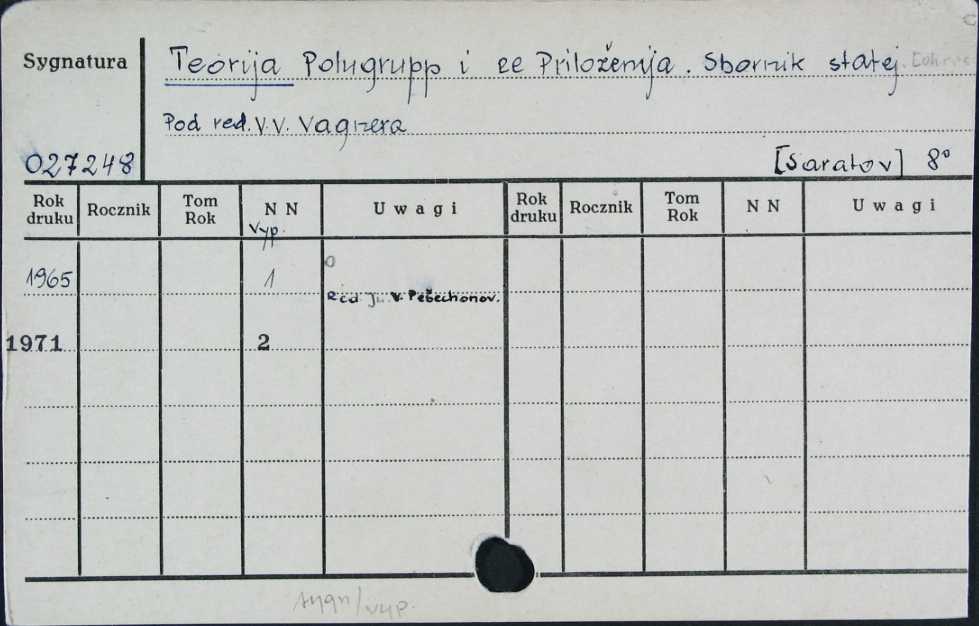 Sygnatura
Teorija Polugrupp i ee Priloženija. Sbornik statej.
Pod red. V.V. Vagnera
027248
[Saratov] 8°
Rok druku Rocznik Tom Rok N N Uwagi Rok druku Rocznik Tom Rok N N Uwagi
Vyp.
1965 1
Red. Ju. V. Pešechonov.
1971 2
sygn/vyp.